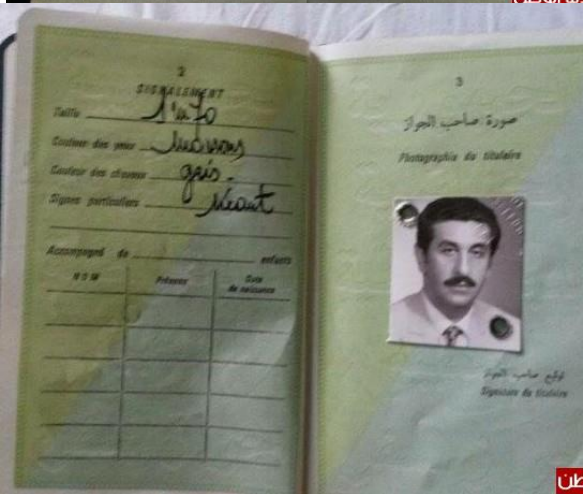 2
SIGNALEMENT
Taille 1m70
Couleur des yeux Marrons
Couleur des cheveux gris-
Signes particuliers Néant
Accompagné de enfants
NOM Prénoms Date de naissance
3
صورة صاحب الجواز
Photographie du titulaire
توقيع صاحب الجواز
Signature du titulaire